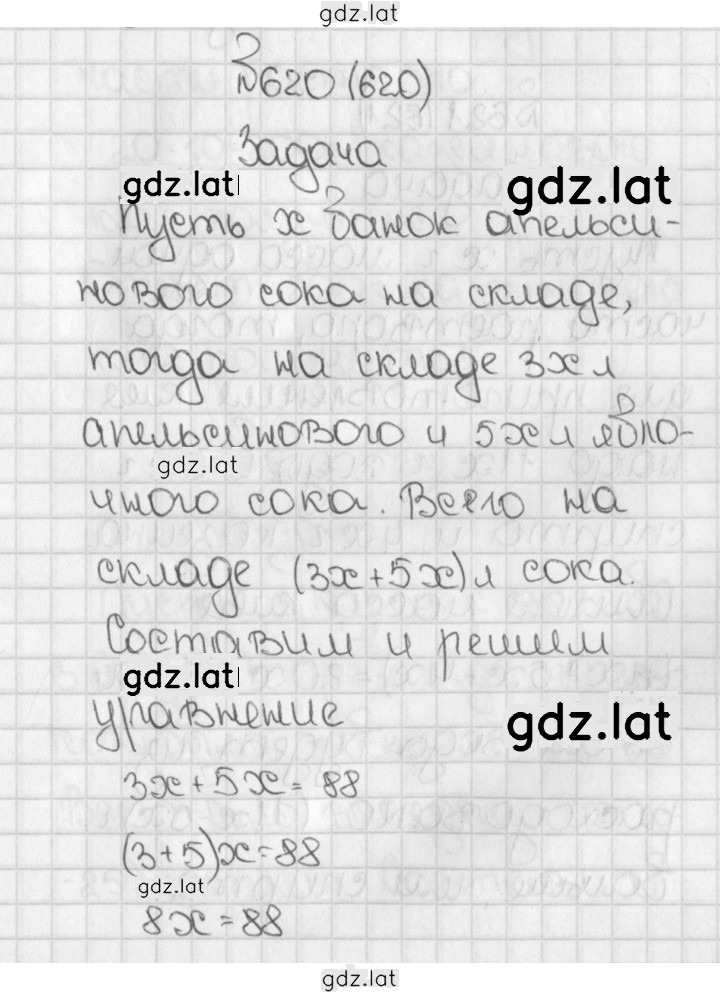 gdz.lat
№620 (620)
Задача
gdz.lat
gdz.lat
Пусть x банок апельси-
нового сока на складе,
тогда на складе 3x л
апельсинового и 5x л ябло-
gdz.lat
чного сока. Всего на
складе (3x+5x) л сока.
Составим и решим
gdz.lat
уравнение
gdz.lat
3x+5x=88
(3+5)x=88
gdz.lat
8x=88
gdz.lat